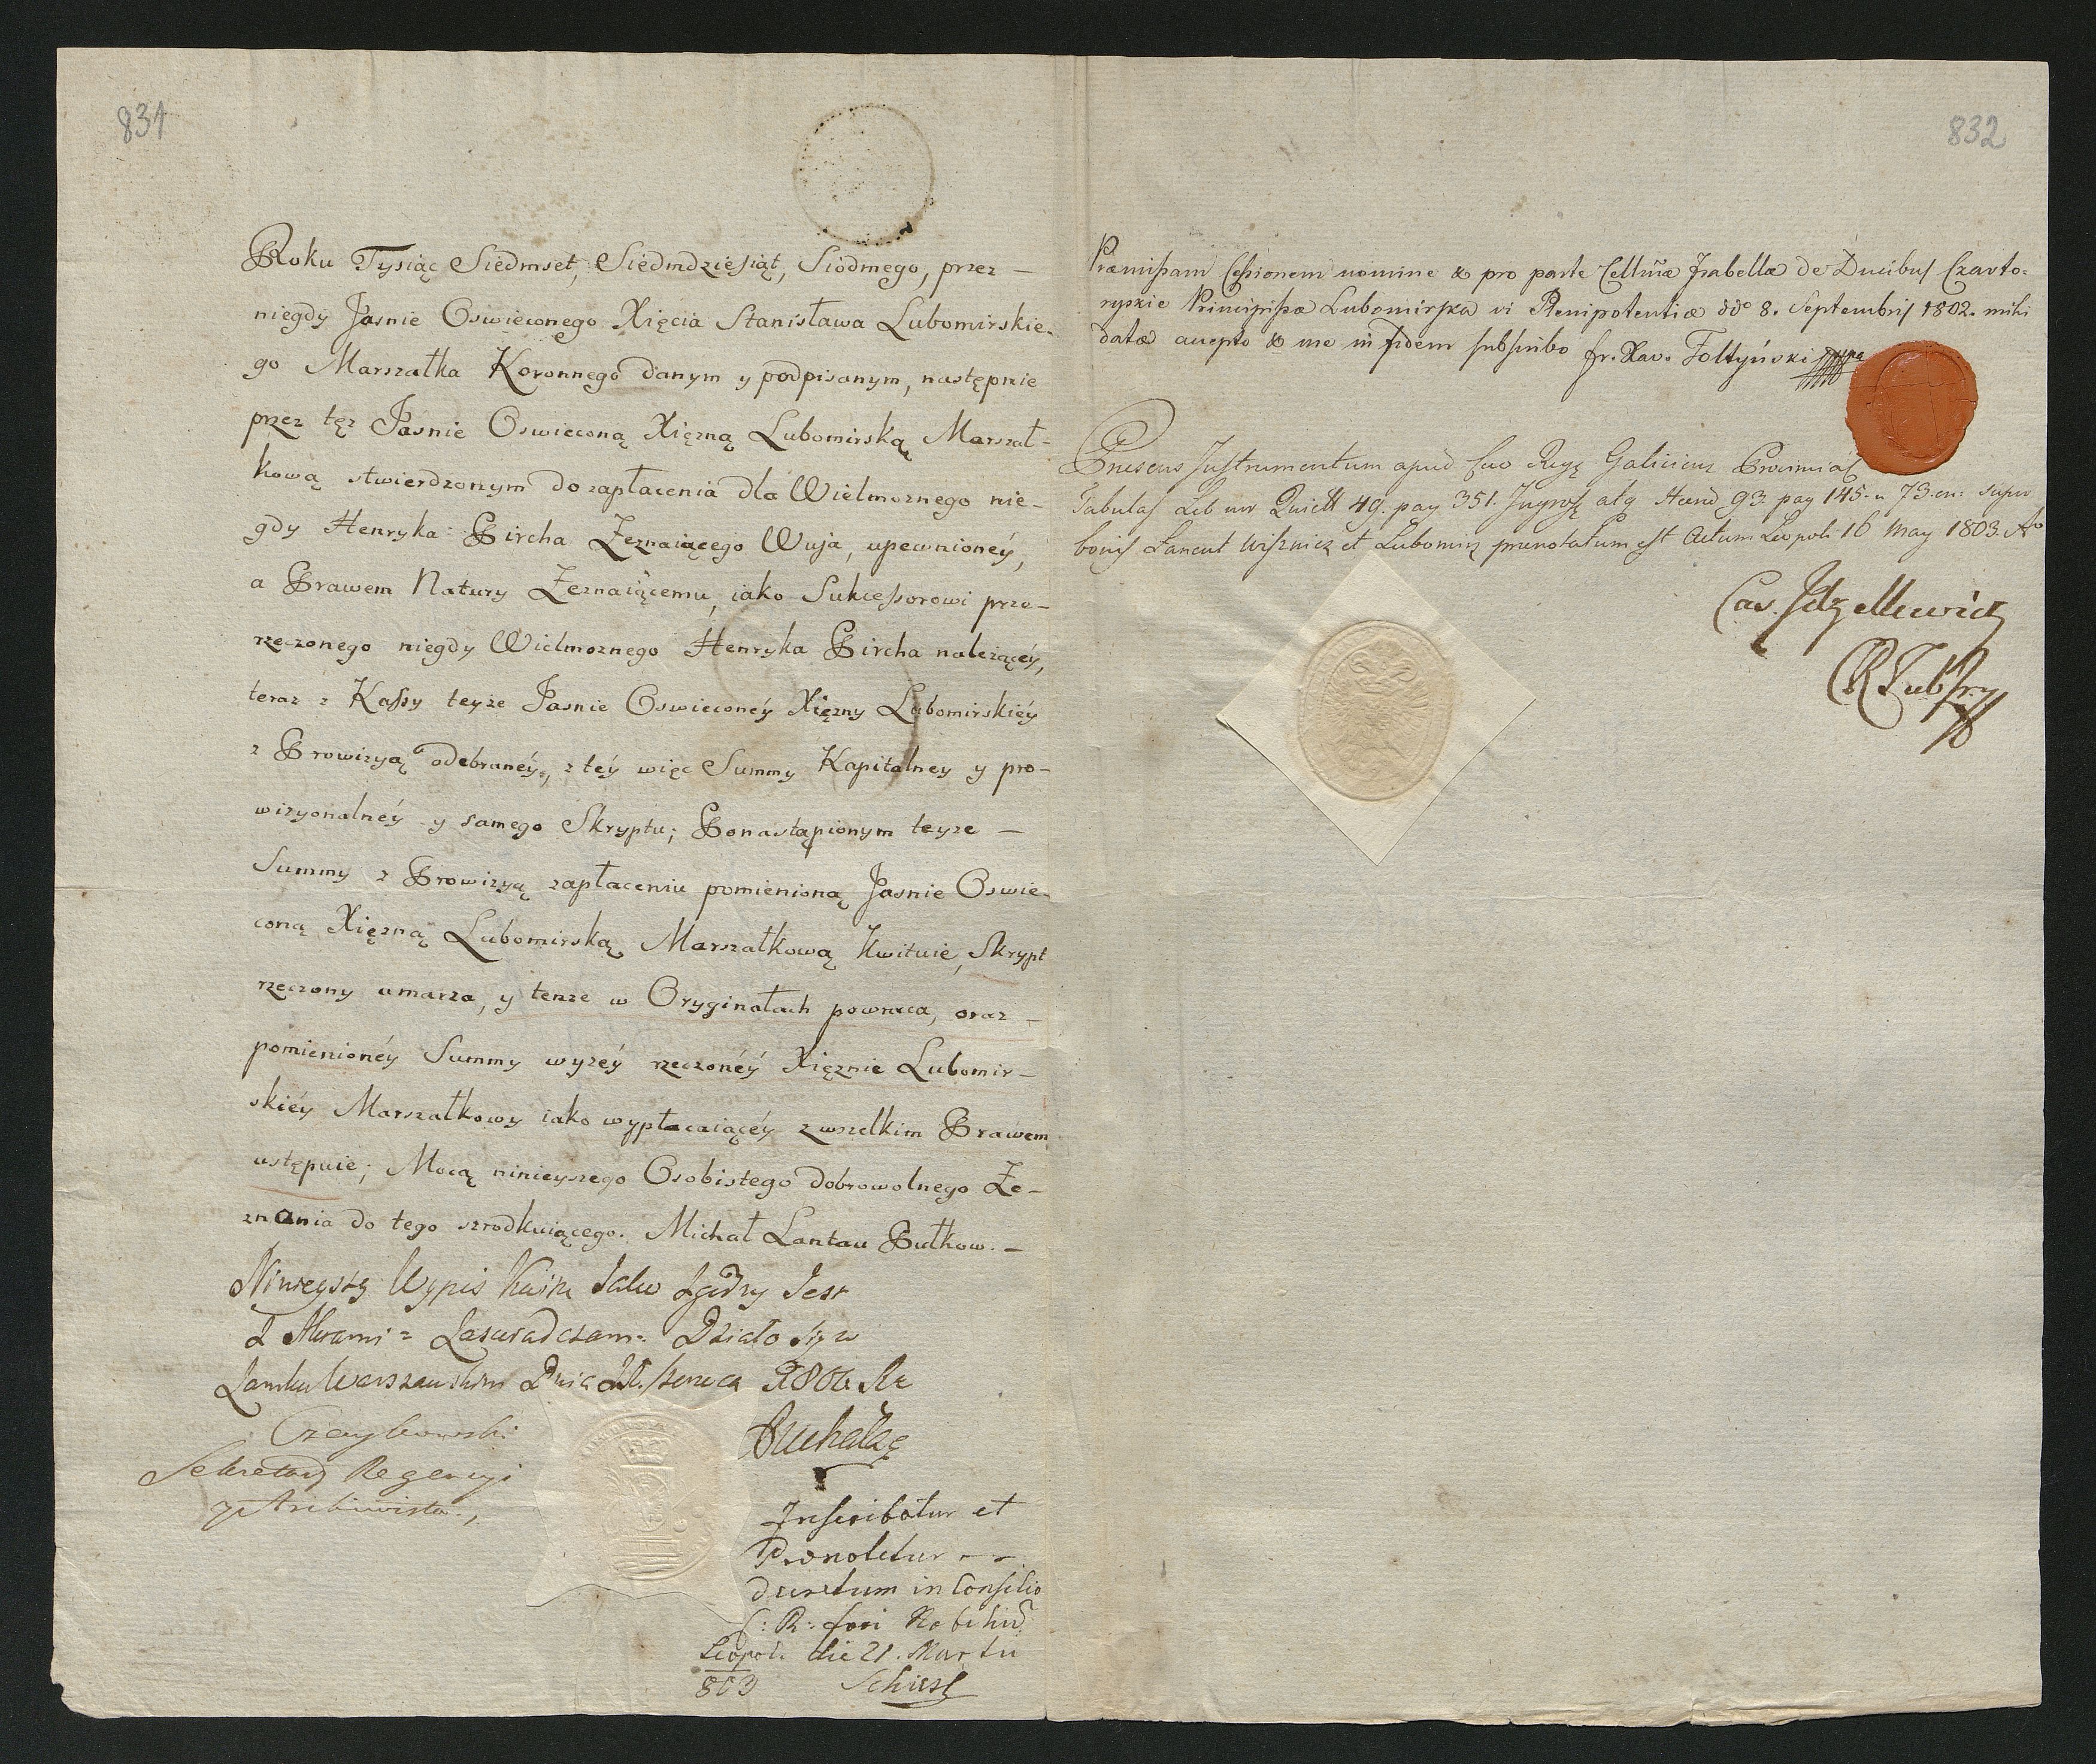 831
Roku Tysiąc Siedmset, Siedmdziesiąt, Siodmego, przez —
niegdy Jasnie Oswieconego Xięcia Stanisława Lubomirskie-
go Marszałka Koronnego danym y podpisanym, następnie
przez tęz Jasnie Oswieconą Xięzną Lubomirską Marszał-
kową stwierdzonym do zapłacenia dla Wielmoznego nie-
gdy Henryka Pircha Zeznaiącego Wuja, upewnioney,
a Prawem Natury Zeznaiącemu, iako Sukcessorowi prze-
rzeczonego niegdy Wielmoznego Henryka Pircha nalezącéy,
teraz z Kassy teyze Jasnie Oswieconéy Xięzny Lubomirskiéy
z Prowizyą odebranéy, z téy więc Summy Kapitalney y pro-
wizyonalnéy y samego Skryptu; Po nastąpionym teyze —
Summy z Prowizyą zapłaceniu pomienioną Jasnie Oswie-
coną Xięzną Lubomirską Marszałkową Kwituie, Skrypt
rzeczony umarza, y tenze w Oryginałach powraca, oraz —
pomienionéy Summy wyzéy rzeczonéy Xięznie Lubomir-
skiéy Marszałkowy iako wypłacaiącéy z wszelkim Prawem
ustępuie; Mocą ninieyszego Osobistego dobrowolnego Ze-
znania do tego szrodkuiącego. Michał Lantau Pułkow. —
Ninieyszy Wypis Zgodny Jest
z Aktami Zaswiadczam. Działo się w
Zamku Warszawskim Dnia
Sekretarz Regencyi
y Archiwista
Inscribatur et
Prenotetur
decretum in Consilio
C: R: fori Nobilium
Leopol: die 21. Martii
803 Schiesl
832
Præmissam Cessionem nomine & pro parte Cellmæ Isabellæ de Ducibus Czarto-
ryskie Principissæ Lubomirska vi Plenipotentiæ ddo 8. Septembris 1802. mihi
datæ accepto & me in fidem subscribo Fr. Xav. Foltyński mpa
Presens Instrumentum apud Caes Regę Galiciens Provincial
Tabulas Lib nov Quiett 49. pag 351. Ingross atq Haered 93 pag 145. n 73. on: super
bonis Lancut Wisznicz et Lubomirz prenotatum est Actum Leopoli 16 May 1803. Ao